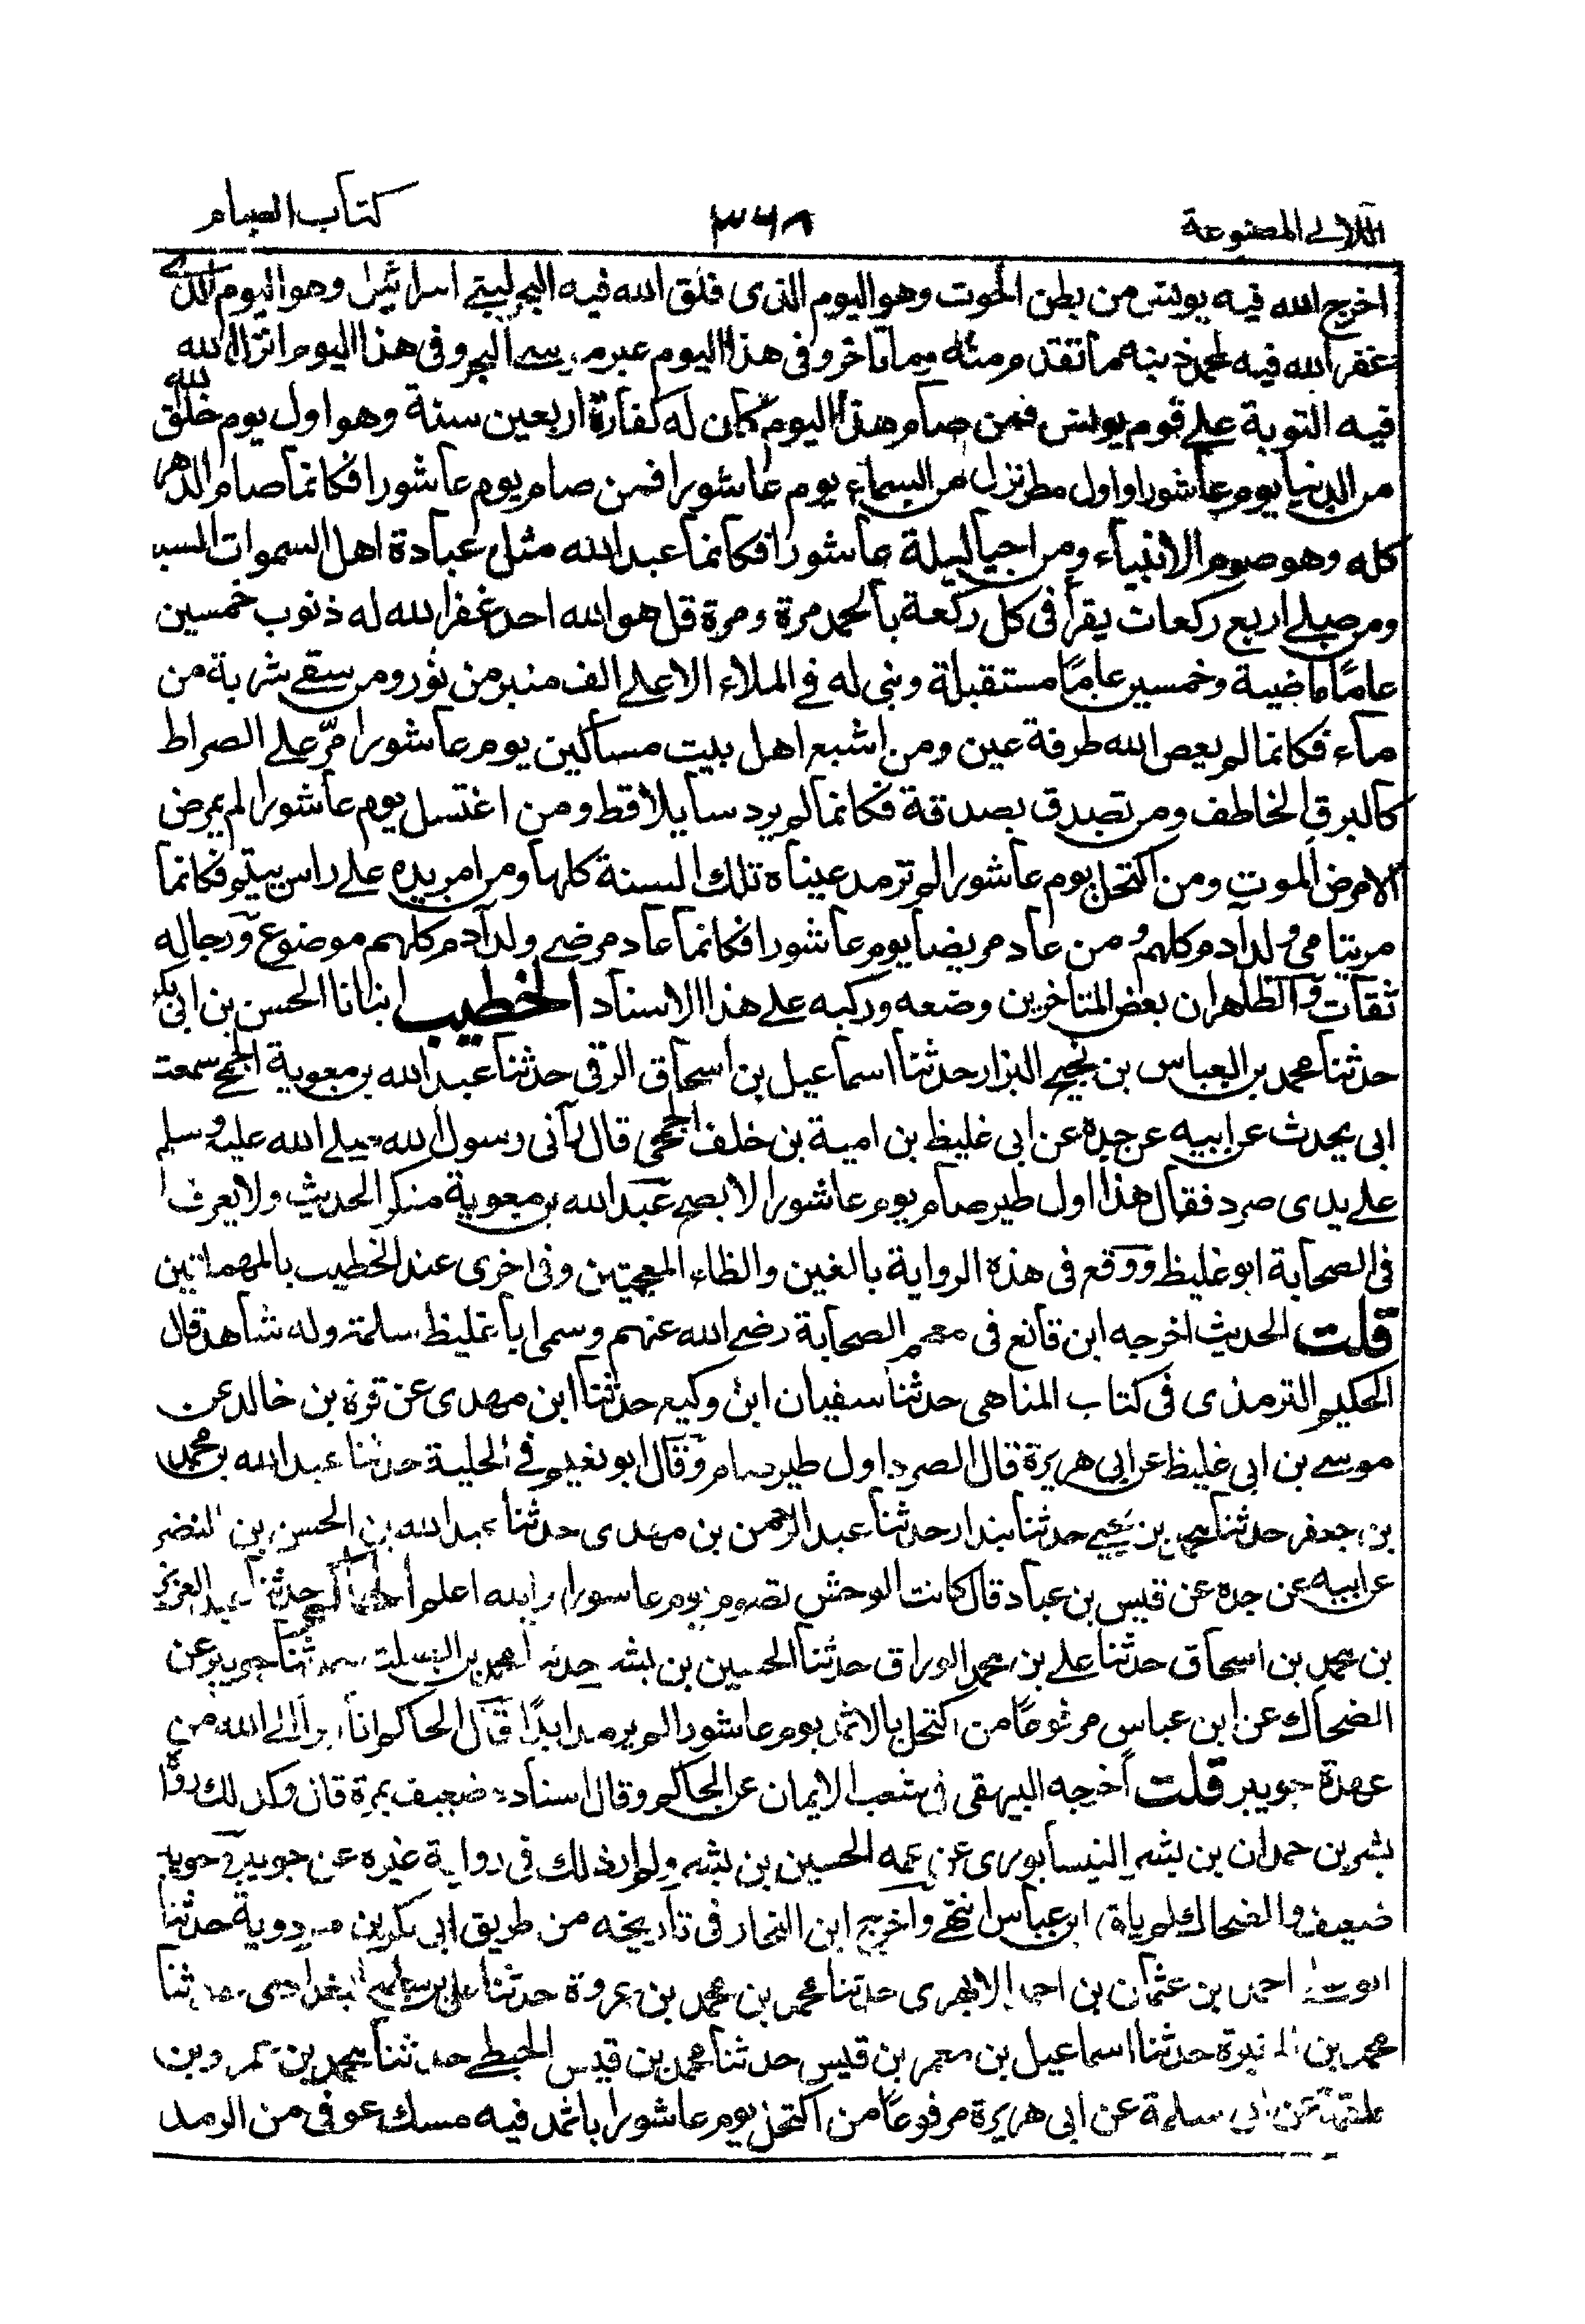 اللآلى المصنوعة
٣٦٨
كتاب الصيام
اخرج الله فيه يونس من بطن الحوت وهو اليوم الذى فلق الله فيه البحر لبنى اسرائيل وهو اليوم الذى
غفر الله فيه لمحمد ذنبه ما تقدم منه وما تاخر وفى هذا اليوم عبر موسى البحر وفى هذا اليوم انزل الله
فيه التوبة على قوم يونس فمن صام هذا اليوم كان له كفارة اربعين سنة وهو اول يوم خلق الله
من الدنيا يوم عاشورا واول مطر نزل من السماء يوم عاشورا فمن صام يوم عاشورا فكانما صام الدهر
كله وهو صوم الانبياء ومن احيا ليلة عاشورا فكانما عبد الله مثل عبادة اهل السموات السبع
ومن صلى اربع ركعات يقرأ فى كل ركعة بالحمد مرة ومرة قل هو الله احد غفر الله له ذنوب خمسين
عامًا ماضية وخمسين عامًا مستقبلة وبنى له فى الملاء الاعلى الف منبر من نور ومن سقى شربة من
ماء فكانما لم يعص الله طرفة عين ومن اشبع اهل بيت مساكين يوم عاشورا مرّ على الصراط
كالبرق الخاطف ومن تصدق بصدقة فكانما لم يرد سايلا قط ومن اغتسل يوم عاشورا لم يمرض
الا مرض الموت ومن اكتحل يوم عاشورا لم ترمد عيناه تلك السنة كلها ومن امر يده على راس يتيم فكانما
بر يتامى ولد آدم كلهم ومن عاد مريضا يوم عاشورا فكانما عاد مرضى ولد آدم كلهم موضوع ورجاله
ثقات والظاهر ان بعض المتاخرين وضعه وركبه على هذا الاسناد الخطيب انبانا الحسن بن ابى بكر
حدثنا محمد بن العباس بن نجيح البزار حدثنا اسماعيل بن اسحاق الرقى حدثنا عبد الله بن معوية الجمحى سمعت
ابى يحدث عن ابيه عن جده عن ابى غليظ بن امية بن خلف الجمحى قال رآنى رسول الله صلى الله عليه وسلم
على يدى صرد فقال هذا اول طير صام يوم عاشورا لا يصح عبد الله بن معوية منكر الحديث ولا يعرف
فى الصحابة ابو غليظ ووقع فى هذه الرواية بالغين والظاء المعجمتين وفى اخرى عند الخطيب بالمهملتين
قلت الحديث اخرجه ابن قانع فى معجم الصحابة رضى الله عنهم وسمى ابا غليظ سلمة وله شاهد قال
الحكيم الترمذى فى كتاب المناهى حدثنا سفيان ابن وكيع حدثنا ابن مهدى عن قرة بن خالد عن
موسى بن ابى غليظ عن ابى هريرة قال الصرد اول طير صام وقال ابو نعيم فى الحلية حدثنا عبد الله بن محمد
بن جعفر حدثنا بن يحيى حدثنا بندار حدثنا عبد الرحمن بن مهدى حدثنا عبد الله بن الحسن بن النضر
عن ابيه عن جده عن قيس بن عباد قال كانت الوحش تصوم يوم عاشورا والله اعلم الحاكم حدثنا عبد العزيز
بن محمد بن اسحاق حدثنا على بن محمد الوراق حدثنا الحسين بن بشر حدثنا محمد بن الصلت حدثنا جويبر عن
الضحاك عن ابن عباس مرفوعًا من اكتحل بالاثمد يوم عاشورا لم يرمد ابدًا قال الحاكم انا ابرأ الى الله من
عهدة جويبر قلت اخرجه البيهقى فى شعب الايمان عن الحاكم وقال اسناده ضعيف بمرة قال وكذلك رواه
بشر بن حمدان بن بشر النيسابورى عن عمه الحسين بن بشر ولم ار ذلك فى رواية غيره عن جويبر وجويبر
ضعيف والضحاك لم يلق ابن عباس انتهى واخرج ابن النجار فى تاريخه من طريق ابى بكر بن مردوية حدثنا
احمد بن عثمان بن احمد الابهرى حدثنا محمد بن محمد بن عروة حدثنا على بن البغدادى حدثنا
محمد بن المغيرة حدثنا اسماعيل بن معمر بن قيس حدثنا محمد بن قيس الحبطى حدثنا محمد بن عمرو بن
علقمة عن ابى سلمة عن ابى هريرة مرفوعًا من اكتحل يوم عاشورا باثمد فيه مسك عوفى من الرمد